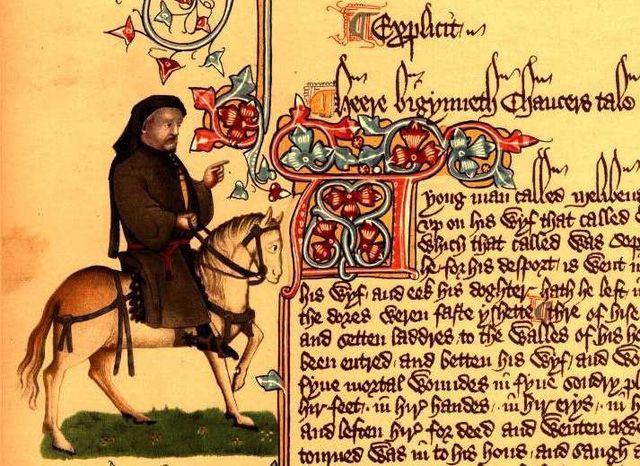 Explicit
Heere bigynneth Chaucers tale
A yong man called Melibeu
vp on his wyf that called
Which that called was Sop
he for his desport is went i
his wyf and eek his doghter hath he left in
the dores weren faste yshette Thre of hise
and setten laddres to the walles of his h
been entred and betten his wyf and wo
fyue mortal woundes in fyue sondry p
hir feet in hir handes in hir erys in h
and leften hir for deed and wenten awe
tourned was in to his hous and saugh